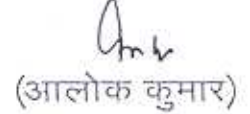 (आलोक कुमार)